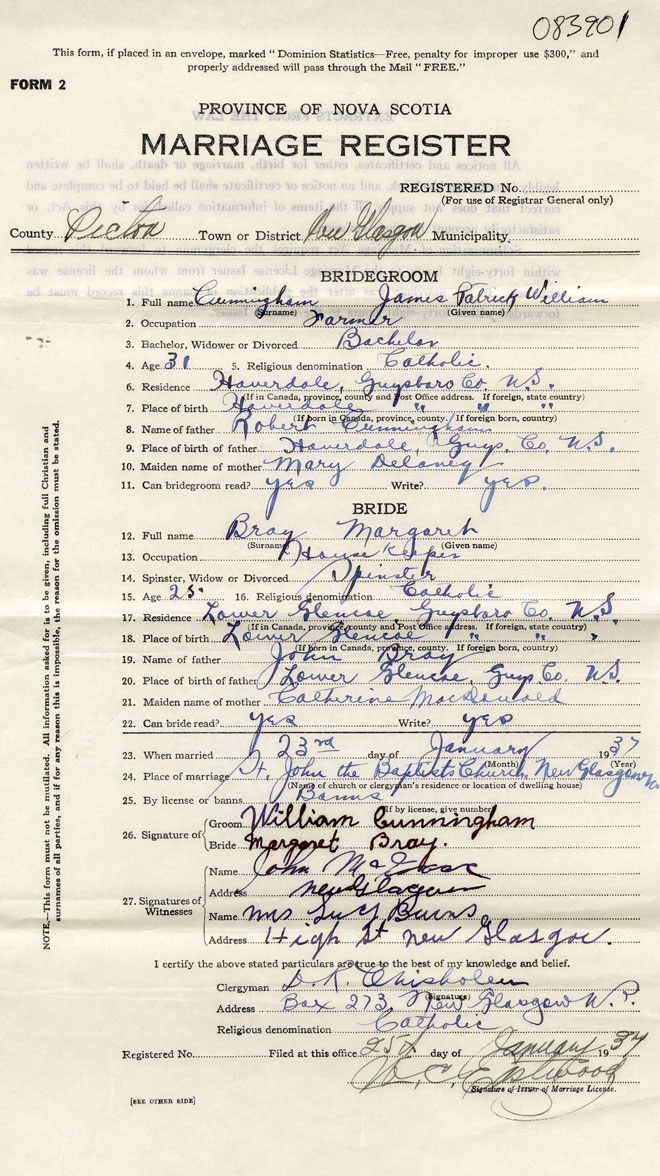 083901
This form, if placed in an envelope, marked “Dominion Statistics—Free, penalty for improper use $300,” and
properly addressed will pass through the Mail “FREE.”
FORM 2
PROVINCE OF NOVA SCOTIA
MARRIAGE REGISTER
REGISTERED No.
(For use of Registrar General only)
County Pictou Town or District New Glasgow Municipality
BRIDEGROOM
1. Full name Cunningham James Patrick William
(Surname) (Given name)
2. Occupation Farmer
3. Bachelor, Widower or Divorced Bachelor
4. Age 31 5. Religious denomination Catholic.
6. Residence Haverdale, Guysboro Co. N.S.
(If in Canada, province, county and Post Office address. If foreign, state country)
7. Place of birth Haverdale " " "
(If born in Canada, province, county. If foreign born, country)
8. Name of father Robert Cunningham
9. Place of birth of father Haverdale, Guys. Co. N.S.
10. Maiden name of mother Mary Delaney
11. Can bridegroom read? yes Write? yes.
BRIDE
12. Full name Bray Margaret
(Surname) (Given name)
13. Occupation House Keeper
14. Spinster, Widow or Divorced Spinster
15. Age 25. 16. Religious denomination Catholic
17. Residence Lower Glencoe Guysboro Co. N.S.
(If in Canada, province, county and Post Office address. If foreign, state country)
18. Place of birth Lower Glencoe " " "
(If born in Canada, province, county. If foreign born, country)
19. Name of father John Bray
20. Place of birth of father Lower Glencoe, Guys Co. N.S.
21. Maiden name of mother Catherine MacDonald
22. Can bride read? yes Write? yes
23. When married 23rd day of January 1937
(Month) (Year)
24. Place of marriage St. John the Baptist Church, New Glasgow
(Name of church or clergyman's residence or location of dwelling house)
25. By license or banns Banns
(If by license, give number)
26. Signature of
Groom William Cunningham
Bride Margaret Bray.
27. Signatures of Witnesses
Name John
Address New Glasgow
Name Mrs Lucy Burns
Address High St New Glasgow.
I certify the above stated particulars are true to the best of my knowledge and belief.
Clergyman D. R. Chisholm
(Signature)
Address Box 273, New Glasgow N.S.
Religious denomination Catholic
Registered No. Filed at this office 25th day of January 1937
Eastwood
Signature of Issuer of Marriage License.
[SEE OTHER SIDE]
NOTE.—This form must not be mutilated. All information asked for is to be given, including full Christian and
surnames of all parties, and if for any reason this is impossible, the reason for the omission must be stated.